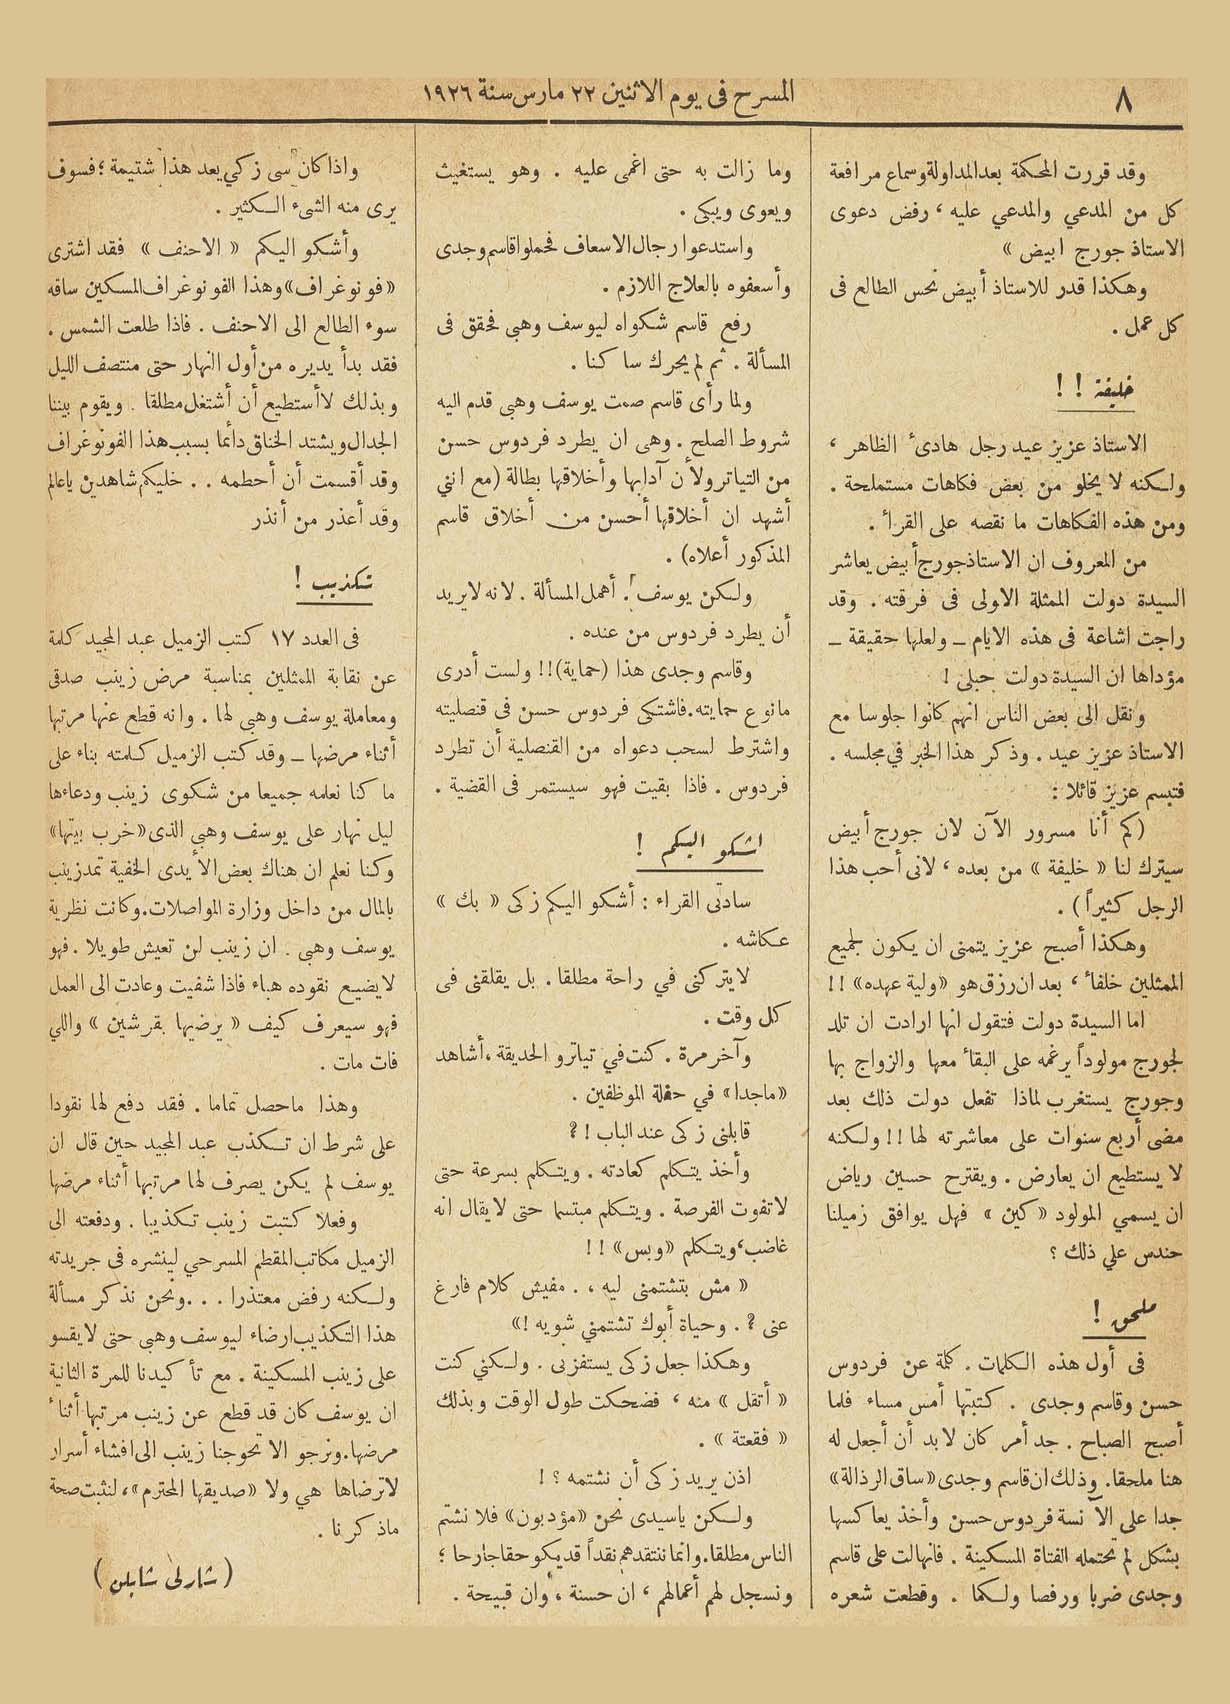 ٨
المسرح فى يوم الاثنين ٢٢ مارس سنة ١٩٢٦
وقد قررت المحكمة بعد المداولة وسماع مرافعة
كل من المدعي والمدعي عليه ، رفض دعوى
الاستاذ جورج ابيض »
وهكذا قدر للاستاذ أبيض نحس الطالع فى
كل عمل .
خليفة ! !
الاستاذ عزيز عيد رجل هادئ الظاهر ،
ولكنه لا يخلو من بعض فكاهات مستملحة .
ومن هذه الفكاهات ما نقصه على القراء .
من المعروف ان الاستاذ جورج أبيض يعاشر
السيدة دولت الممثلة الاولى فى فرقته . وقد
راجت اشاعة فى هذه الايام ــ ولعلها حقيقة ــ
مؤداها ان السيدة دولت حبلى !
ونقل الى بعض الناس انهم كانوا جلوسا مع
الاستاذ عزيز عيد . وذكر هذا الخبر في مجلسه .
فتبسم عزيز قائلا :
(كم أنا مسرور الآن لان جورج أبيض
سيترك لنا « خليفة » من بعده ، لانى أحب هذا
الرجل كثيراً ) .
وهكذا أصبح عزيز يتمنى ان يكون لجميع
الممثلين خلفاء ، بعد ان رزق هو «ولية عهده» !!
اما السيدة دولت فتقول انها ارادت ان تلد
لجورج مولوداً يرغمه على البقاء معها والزواج بها
وجورج يستغرب لماذا تفعل دولت ذلك بعد
مضى أربع سنوات على معاشرته لها !! ولكنه
لا يستطيع ان يعارض . ويقترح حسين رياض
ان يسمي المولود « كين » فهل يوافق زميلنا
حندس علي ذلك ؟
ملحق !
فى أول هذه الكلمات . كلمة عن فردوس
حسن وقاسم وجدى . كتبتها أمس مساء فلما
أصبح الصباح . جد أمر كان لا بد أن أجعل له
هنا ملحقا . وذلك ان قاسم وجدى «ساق الرذالة»
جدا على الآنسة فردوس حسن وأخذ يعاكسها
بشكل لم تحتمله الفتاة المسكينة . فانهالت على قاسم
وجدى ضربا ورفصا ولكما . وقطعت شعره
وما زالت به حتى اغمى عليه . وهو يستغيث
ويعوى ويبكى .
واستدعوا رجال الاسعاف فحملوا قاسم وجدى
وأسعفوه بالعلاج اللازم .
رفع قاسم شكواه ليوسف وهبي فحقق فى
المسألة . ثم لم يحرك ساكنا .
ولما رأى قاسم صمت يوسف وهبي قدم اليه
شروط الصلح . وهى ان يطرد فردوس حسن
من التياترو لأن آدابها وأخلاقها بطالة ( مع انني
أشهد ان أخلاقها أحسن من أخلاق قاسم
المذكور أعلاه) .
ولكن يوسف . أهمل المسألة . لانه لا يريد
أن يطرد فردوس من عنده .
وقاسم وجدى هذا (حماية)!! ولست أدرى
ما نوع حمايته . فاشتكى فردوس حسن فى قنصليته
واشترط لسحب دعواه من القنصلية أن تطرد
فردوس . فاذا بقيت فهو سيستمر فى القضية .
اشكو اليكم !
سادتى القراء : أشكو اليكم زكى « بك »
عكاشه .
لا يتركنى في راحة مطلقا . بل يقلقنى فى
كل وقت .
وآخر مرة . كنت في تياترو الحديقة ، أشاهد
«ماجدا» في حفلة الموظفين .
قابلنى زكى عند الباب ! ?
وأخذ يتكلم كعادته . ويتكلم بسرعة حتى
لا تفوت الفرصة . ويتكلم مبتسما حتى لا يقال انه
غاضب ، ويتكلم «وبس» ! !
« مش بتشتمنى ليه ، . مفيش كلام فارغ
عنى ? . وحياة أبوك تشتمني شويه !»
وهكذا جعل زكى يستفزنى . ولكني كنت
« أتقل » منه ، فضحكت طول الوقت وبذلك
« فقعتة » .
اذن يريد زكى أن نشتمه ? !
ولكن ياسيدى نحن «مؤدبون» فلا نشتم
الناس مطلقا . وانما ننتقدهم نقداً قد يكو حقا جارحا ؛
ونسجل لهم أعمالهم ، ان حسنة ، وان قبيحة .
واذا كان سى زكي يعد هذا شتيمة ؛ فسوف
يرى منه الشىء الكثير .
وأشكو اليكم « الاحنف » فقد اشترى
«فونوغراف» وهذا الفونوغراف المسكين ساقه
سوء الطالع الى الاحنف . فاذا طلعت الشمس .
فقد بدأ يديره من أول النهار حتى منتصف الليل
وبذلك لا أستطيع أن أشتغل مطلقا . ويقوم بيننا
الجدال ويشتد الخناق دائما بسبب هذا الفونوغراف
وقد أقسمت أن أحطمه . . خليكم شاهدين ياعالم
وقد أعذر من أنذر
تكذيب !
فى العدد ١٧ كتب الزميل عبد المجيد كلمة
عن نقابة الممثلين بمناسبة مرض زينب صدقى
ومعاملة يوسف وهبي لها . وانه قطع عنها مرتبها
أثناء مرضها ــ وقد كتب الزميل كلمته بناء على
ما كنا نعلمه جميعا من شكوى زينب ودعاءها
ليل نهار على يوسف وهبي الذى «خرب بيتها»
وكنا نعلم ان هناك بعض الأيدى الخفية تمد زينب
بالمال من داخل وزارة المواصلات . وكانت نظرية
يوسف وهبي . ان زينب لن تعيش طويلا . فهو
لا يضيع نقوده هباء فاذا شفيت وعادت الى العمل
فهو سيعرف كيف « يرضيها بقرشين » واللي
فات مات .
وهذا ما حصل تماما . فقد دفع لها نقودا
على شرط ان تكذب عبد المجيد حين قال ان
يوسف لم يكن يصرف لها مرتبها أثناء مرضها
وفعلا كتبت زينب تكذيبا . ودفعته الى
الزميل مكاتب المقطم المسرحي لينشره فى جريدته
ولكنه رفض معتذرا . . . ونحن نذكر مسألة
هذا التكذيب ارضاء ليوسف وهبى حتى لا يقسو
على زينب المسكينة . مع تأكيدنا للمرة الثانية
ان يوسف كان قد قطع عن زينب مرتبها أثناء
مرضها . ونرجو الا تحوجنا زينب الى افشاء أسرار
لا ترضاها هي ولا «صديقها المحترم» ، لنثبت صحة
ماذكرنا .
( شارلى شابلن )